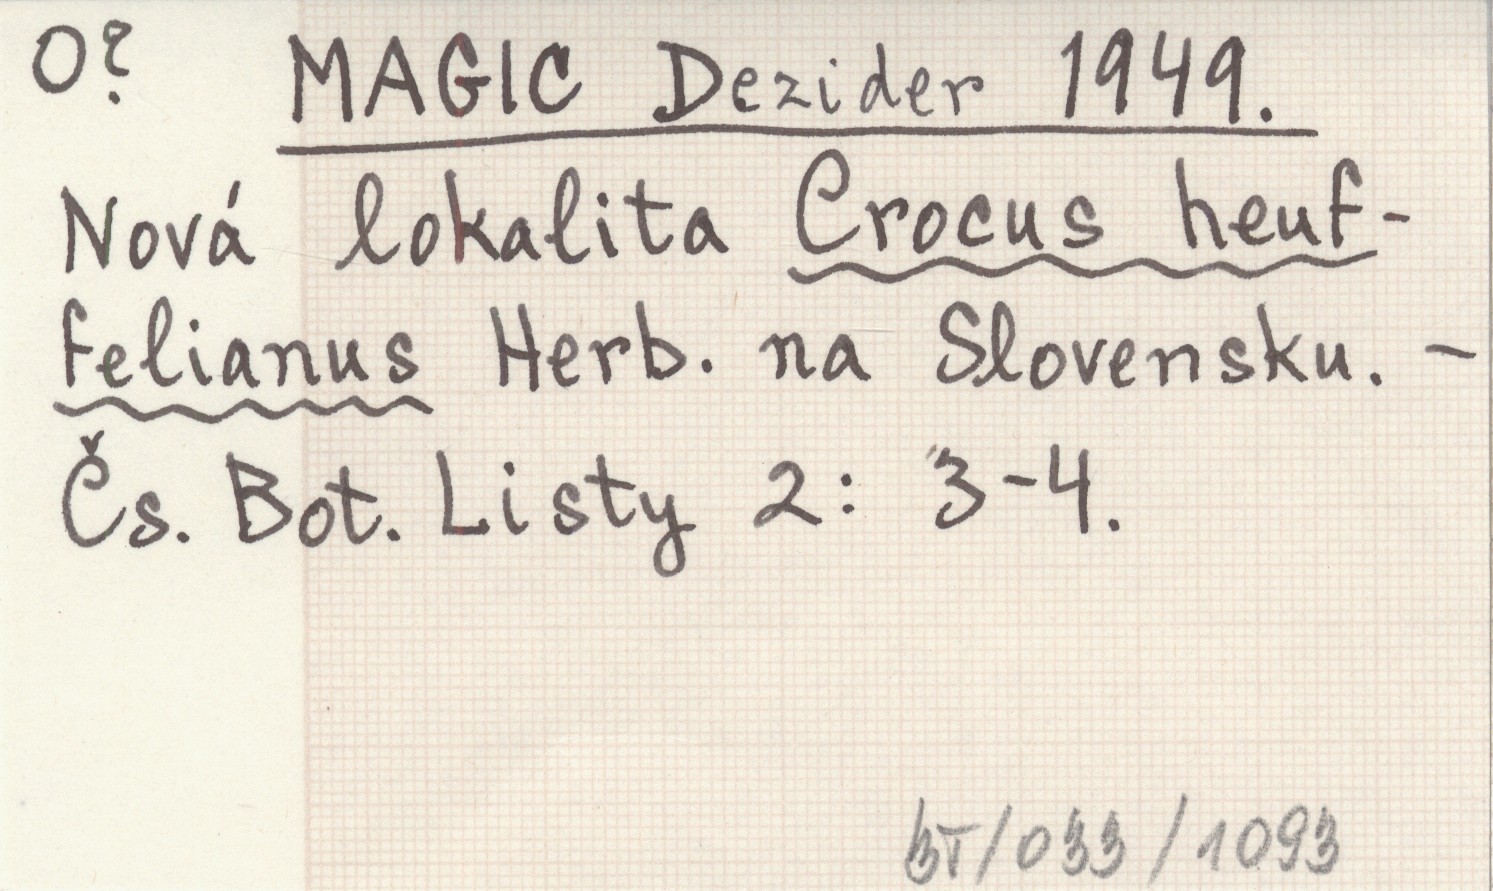 O? MAGIC Dezider 1949.
Nová lokalita Crocus heuf-
felianus Herb. na Slovensku. -
Čs. Bot. Listy 2: 3-4.
/033/1093